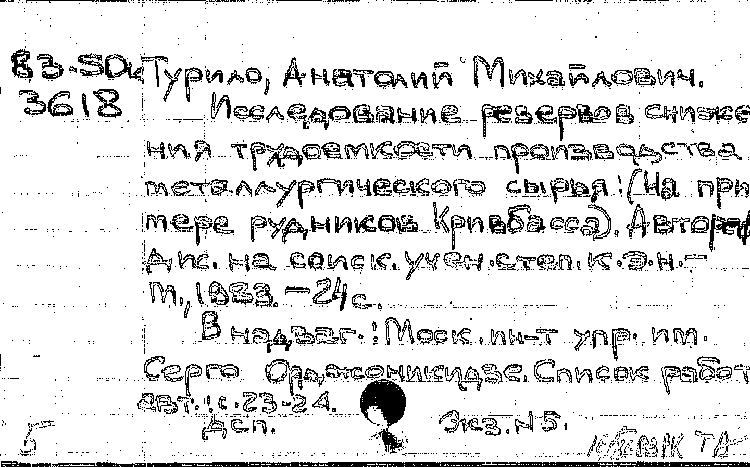 83-5Dк Турило, Анатолий Михайлович.
3618 Исследование резервов сниже
ния трудоемкости производства
металлургического сырья: (На при
мере рудников Кривбасса). Автореф
Дис. на соиск. учен. степ. к.э.н.-
М., 1983. - 24 с.
В надзаг.: Моск. ин-т упр. им.
Серго Орджоникидзе. Список работ
авт.: с. 23-24.
ДСП. Экз. N5.
5